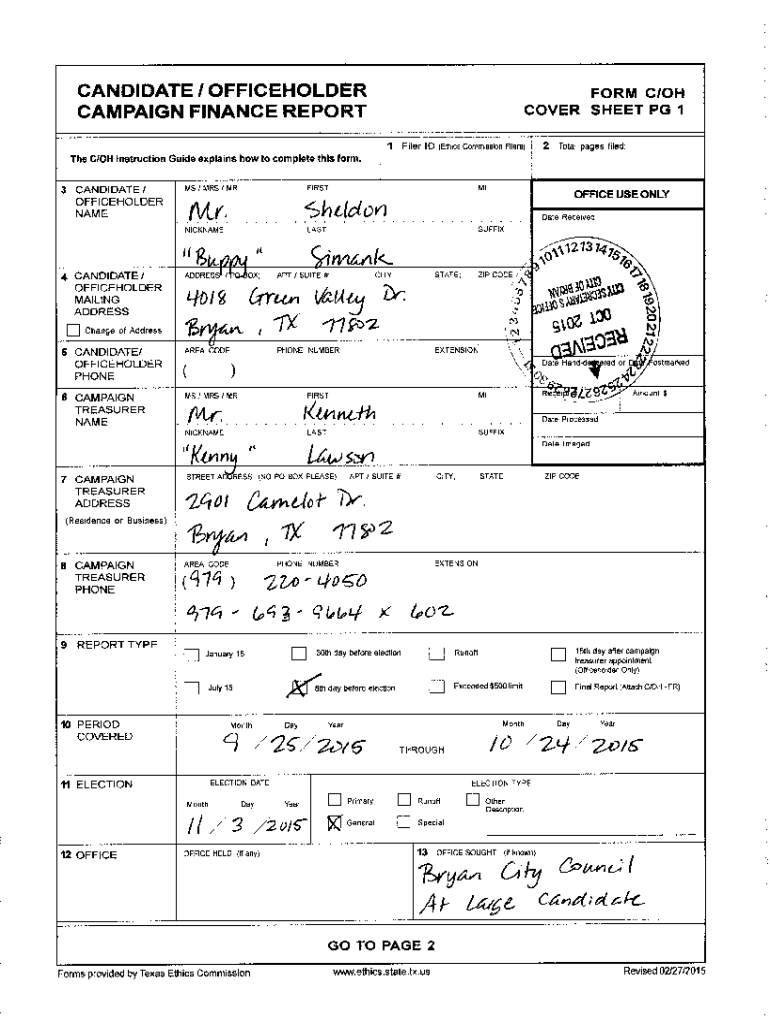 CANDIDATE / OFFICEHOLDER
CAMPAIGN FINANCE REPORT
FORM C/OH
COVER SHEET PG 1
The C/OH Instruction Guide explains how to complete this form.
1 Filer ID (Ethics Commission Filers)
2 Total pages filed:
3 CANDIDATE / OFFICEHOLDER NAME
MS / MRS / MR FIRST MI
Mr. Sheldon
NICKNAME LAST SUFFIX
"Buppy" Simank
OFFICE USE ONLY
Date Received
RECEIVED
OCT 2015
CITY OF BRYAN
CITY SECRETARY'S OFFICE
Date Hand-delivered or Date Postmarked
Receipt # Amount $
Date Processed
Date Imaged
4 CANDIDATE / OFFICEHOLDER MAILING ADDRESS
Change of Address
ADDRESS / PO BOX; APT / SUITE # CITY STATE; ZIP CODE
4018 Green Valley Dr.
Bryan, TX 77802
5 CANDIDATE/ OFFICEHOLDER PHONE
AREA CODE PHONE NUMBER EXTENSION
( )
6 CAMPAIGN TREASURER NAME
MS / MRS / MR FIRST MI
Mr. Kenneth
NICKNAME LAST SUFFIX
"Kenny" Lawson
7 CAMPAIGN TREASURER ADDRESS
(Residence or Business)
STREET ADDRESS (NO PO BOX PLEASE) APT / SUITE # CITY, STATE ZIP CODE
2901 Camelot Dr.
Bryan, TX 77802
8 CAMPAIGN TREASURER PHONE
AREA CODE PHONE NUMBER EXTENSION
(979) 220-4050
979-693-9664 x 602
9 REPORT TYPE
January 15 30th day before election Runoff 15th day after campaign treasurer appointment (Officeholder Only)
July 15 8th day before election Exceeded $500 limit Final Report (Attach C/OH - FR)
10 PERIOD COVERED
Month Day Year Month Day Year
9 / 25 / 2015 THROUGH 10 / 24 / 2015
11 ELECTION
ELECTION DATE ELECTION TYPE
Month Day Year Primary Runoff Other Description
11 / 3 / 2015 General Special
12 OFFICE
OFFICE HELD (if any)
13 OFFICE SOUGHT (if known)
Bryan City Council
At Large Candidate
GO TO PAGE 2
Forms provided by Texas Ethics Commission www.ethics.state.tx.us Revised 02/27/2015